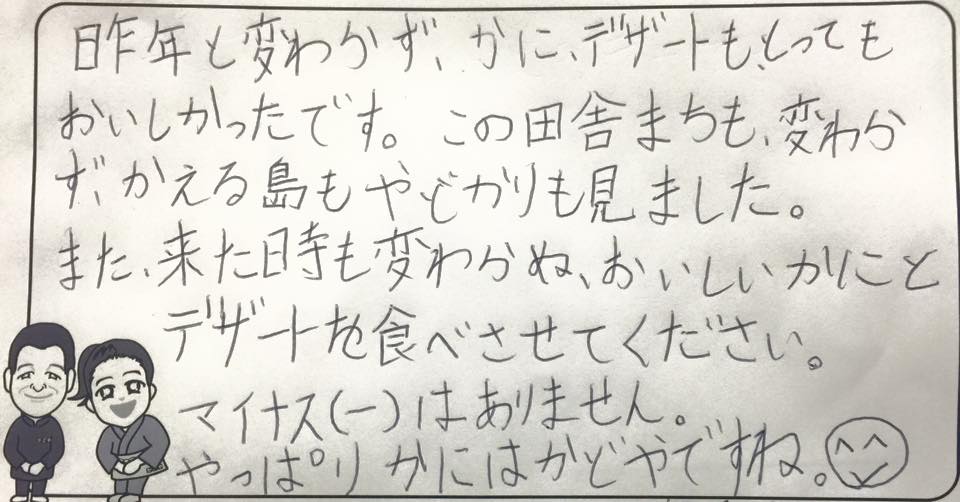 昨年と変わらず、かに、デザートも、とっても
おいしかったです。この田舎まちも、変わら
ず、かえる島もやどかりも見ました。
また、来た時も変わらぬ、おいしいかにこと
デザートを食べさせてください。
マイナス(ー)はありません。
やっぱりかにはかどやですね。